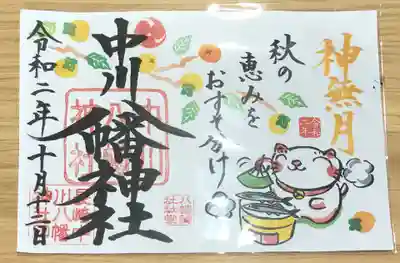 神無月
秋の
恵みを
おすそ分け
中川八幡神社
令和二年十月十三日